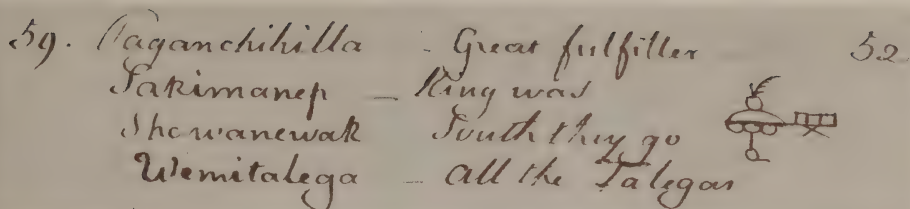 59. Paganchihilla - Great fulfiller 52
Sakimanep - King was
Showanewak South they go
Wemitalega - all the Talegas